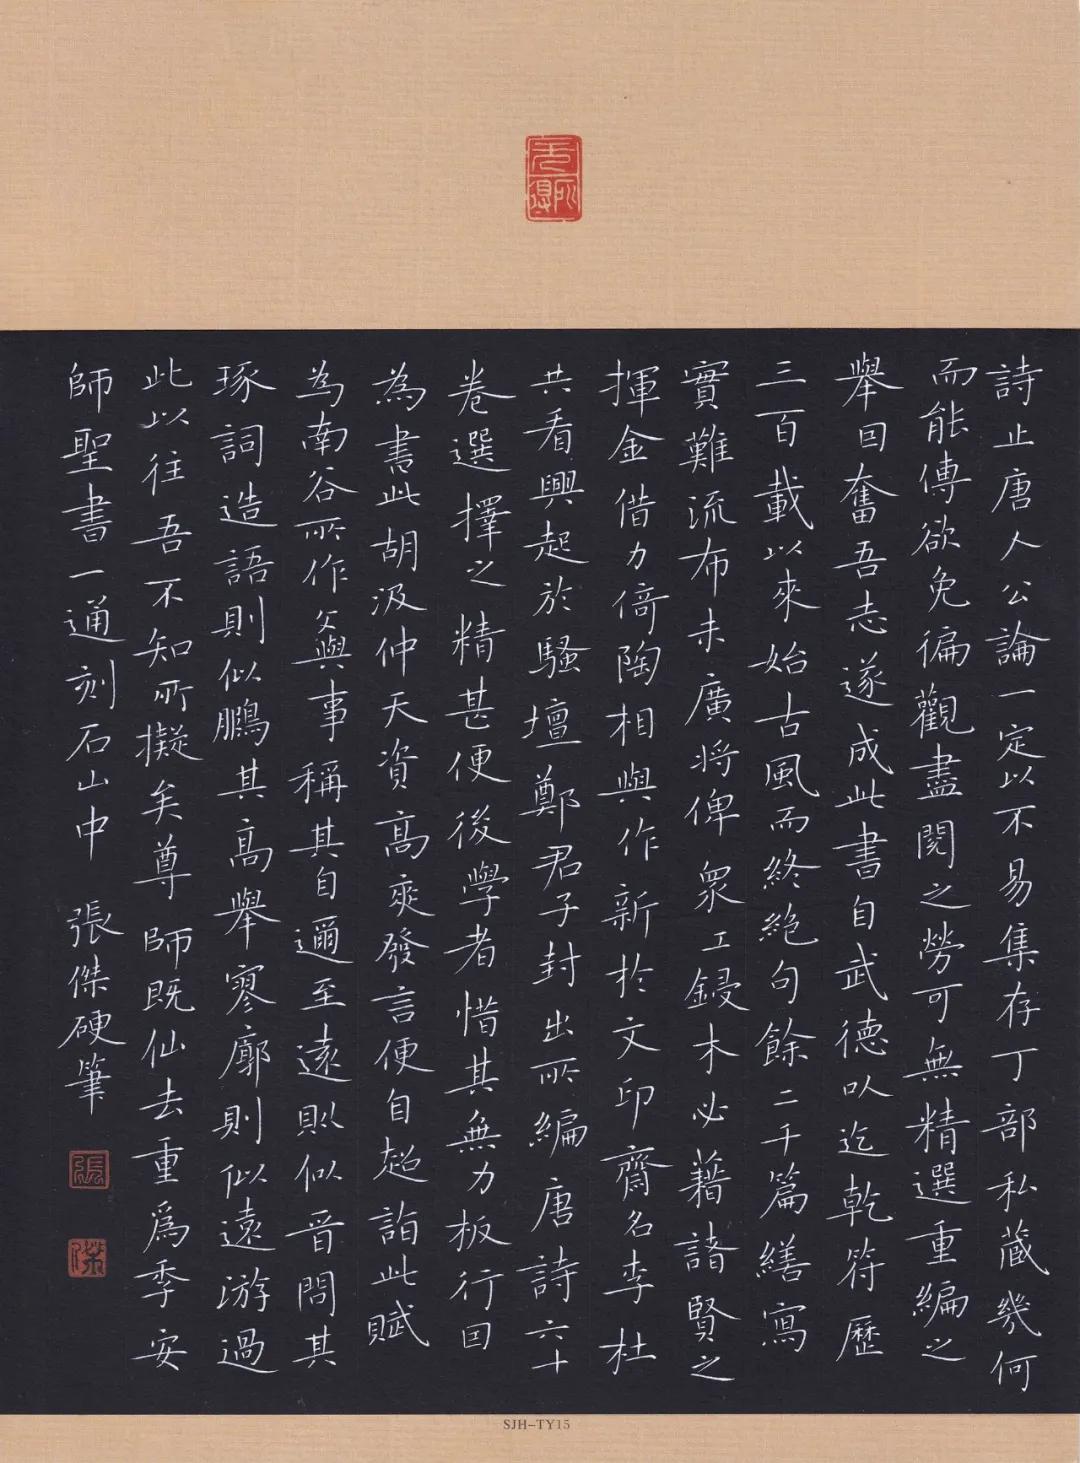 詩止唐人公論一定以不易集存丁部私藏幾何
而能傳欲免徧觀盡閱之勞可無精選重編之
舉因奮吾志遂成此書自武德以迄乾符歷
三百載以來始古風而終絶句餘二千篇繕寫
實難流布未廣將俾衆工鋟木必藉諸賢之
揮金借力倚陶相與作新於文印齋名李杜
共看興起於騷壇鄭君子封出所編唐詩六十
卷選擇之精甚便後學者惜其無力板行因
為書此胡汲仲天資高爽發言便自超詣此賦
為南谷所作文與事稱其自邇至遠則似晋問其
琢詞造語則似鵬其高舉寥廓則似遠游過
此以往吾不知所擬矣尊師既仙去重爲季安
師聖書一通刻石山中 張傑硬筆
張
傑
SJH-TY15